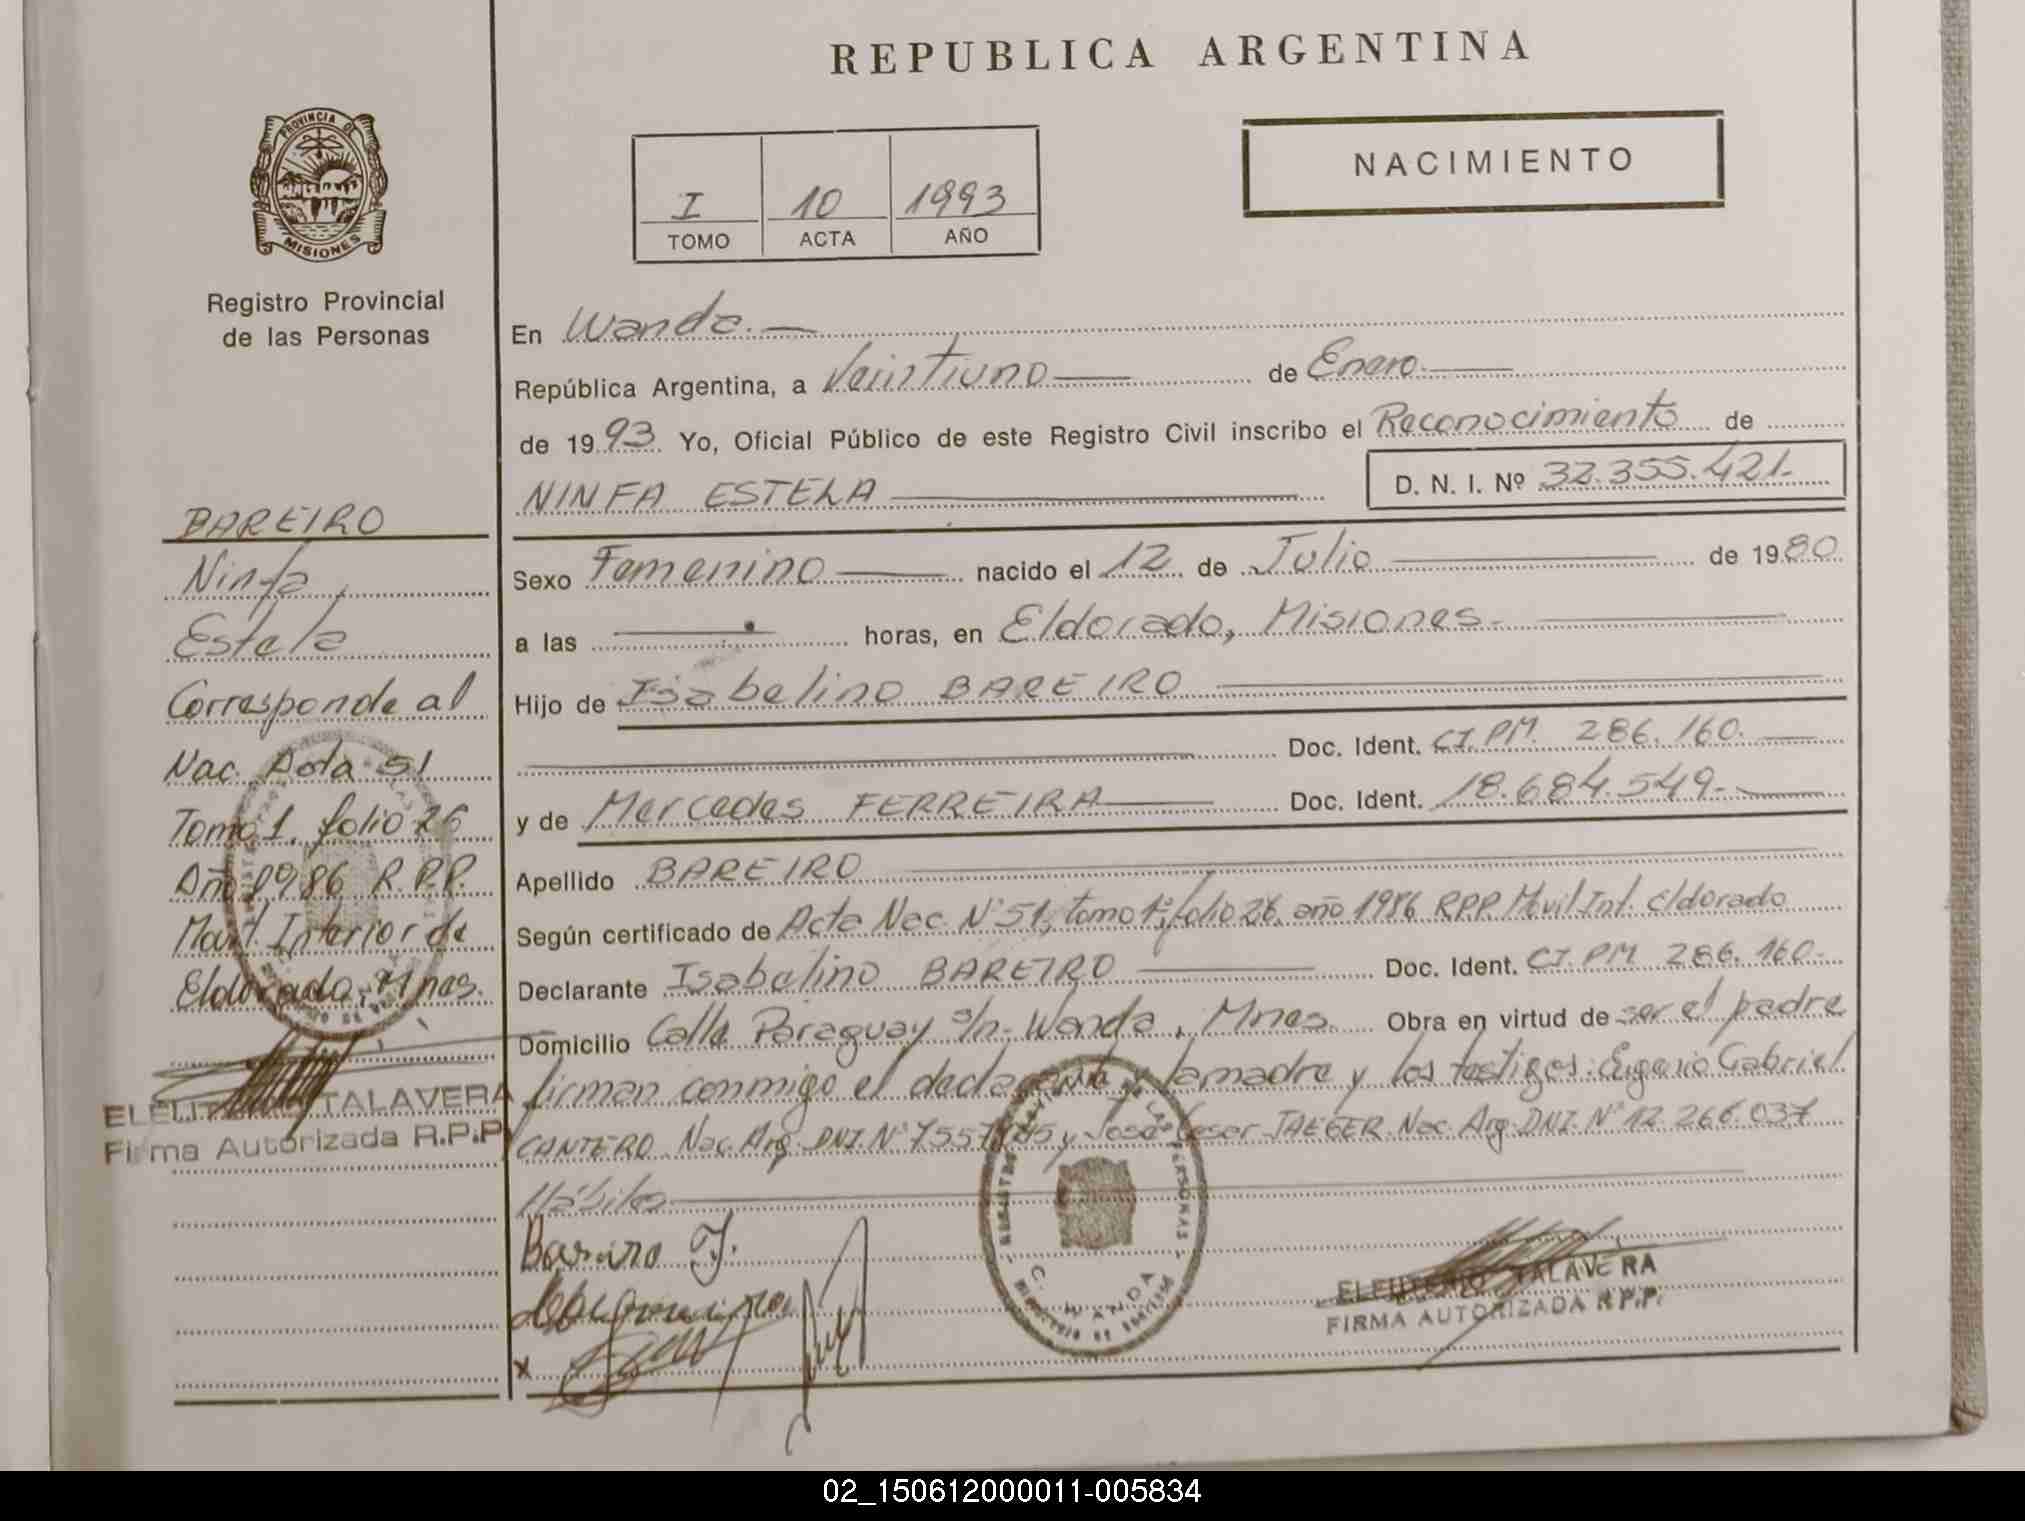 REPUBLICA ARGENTINA
PROVINCIA DE
MISIONES
Registro Provincial
de las Personas
I 10 1993
TOMO ACTA AÑO
NACIMIENTO
En Wanda.
República Argentina, a Veintiuno de Enero
de 1993 Yo, Oficial Público de este Registro Civil inscribo el Reconocimiento de
NINFA ESTELA D. N. I. Nº 32.355.421.
Sexo Femenino nacido el 12 de Julio de 1980
a las horas, en Eldorado, Misiones.
Hijo de Isabelino BAREIRO
Doc. Ident. CI. PM. 286.160.
y de Mercedes FERREIRA Doc. Ident. 18.684.549.
Apellido BAREIRO
Según certificado de Acta Nac. N° 51, tomo 1°, folio 26, año 1986 RPP. Movil Int. Eldorado
Declarante Isabelino BAREIRO Doc. Ident. CI. PM 286.160.
Domicilio Calle Paraguay s/n. Wanda, Mnes. Obra en virtud de ser el padre
firman conmigo el declarante y la madre y los testigos: Eugenio Gabriel
CANTERO Nac. Arg. DNI. N° y José Cesar JAEGER Nac. Arg. DNI. N° 12.266.037
Hábiles
Bareiro
x
ELEUTERIO TALAVERA
FIRMA AUTORIZADA R.P.P.
WANDA
BAREIRO
Ninfa,
Estela
Corresponde al
Nac. Acta 51
Tomo 1, folio 26
Año 1986 R.P.P.
Interior de
Eldorado, Mnes.
TALAVERA
Firma Autorizada R.P.P.
02_150612000011-005834